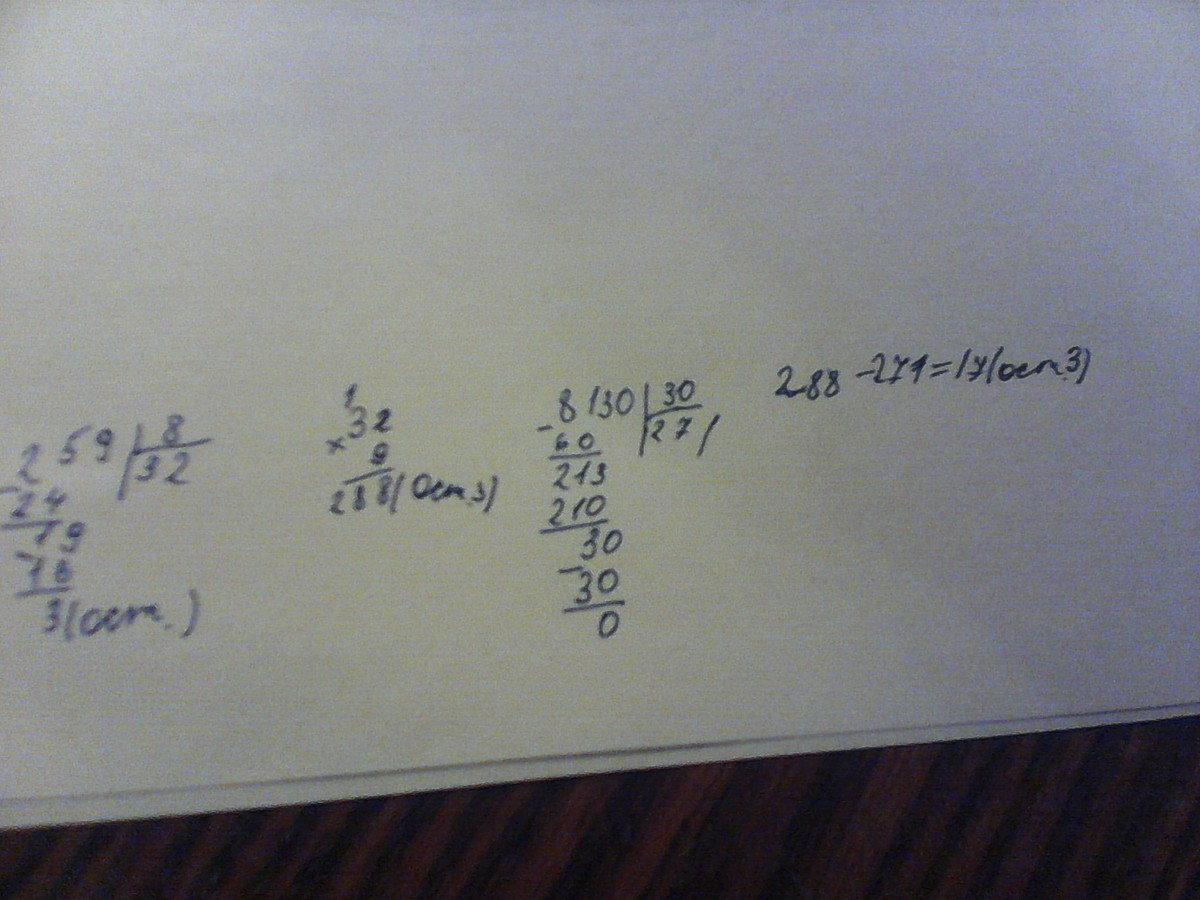 259 | 8
- 24 | 32
19
- 16
3(ост.)
1
32
× 9
288(ост.3)
8130 | 30
- 60 | 271
213
210
30
- 30
0
288-271=17(ост.3)